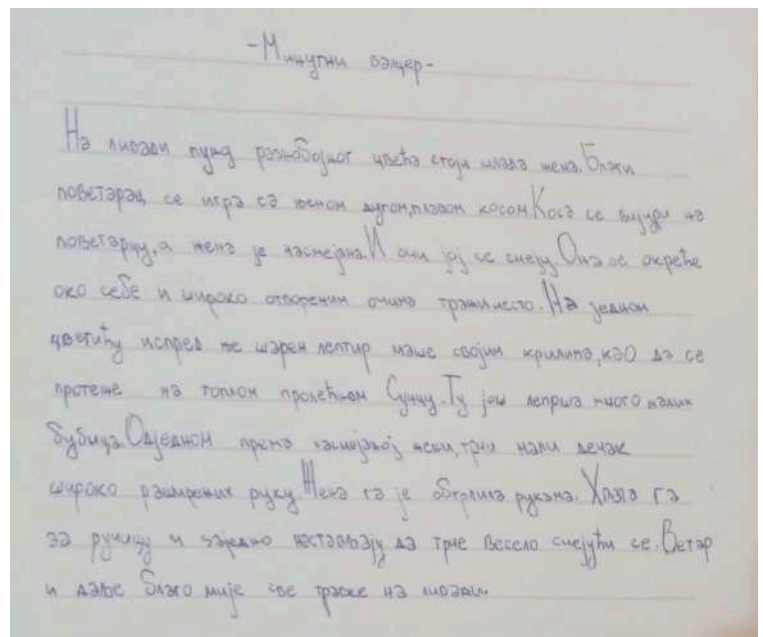 -Мирисни валцер-
На ливади пуној разнобојног цвећа стоји млада жена. Благи
поветарац се игра са њеном дугом, плавом косом. Коса се вијури на
поветарцу, а жена је насмејана. И очи јој се смеју. Она се окреће
око себе и широко отвореним очима тражи нешто. На једном
цветићу испред ње шарен лептир маше својим крилима, као да се
протеже на топлом пролећном Сунцу. Ту још лепрша много малих
бубица. Одједном према насмејаној жени, трчи мали дечак
широко раширених руку. Жена га је обгрлила рукама. Хвата га
за ручицу и заједно настављају да трче весело смејући се. Ветар
и даље благо мије све травке на ливади.